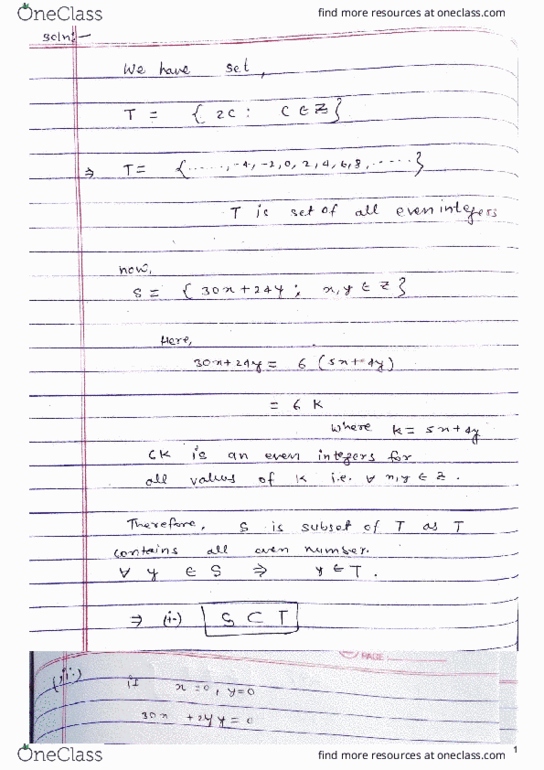 OneClass
find more resources at oneclass.com
soln:-
We have set,
T = { 2c : c ∈ Z }
⇒ T = { ......, -4, -2, 0, 2, 4, 6, 8, ...... }
T is set of all even integers
now,
S = { 30x + 24y ; x, y ∈ Z }
Here,
30x + 24y = 6 (5x + 4y)
= 6 K
where K = 5x + 4y
6K is an even integers for
all values of K i.e. ∀ x, y ∈ Z.
Therefore, S is subset of T as T
contains all even number.
∀ y ∈ S ⇒ y ∈ T.
⇒ (i) S ⊂ T
PAGE:
(ii) if x = 0, y = 0
30x + 24y = 0
OneClass
find more resources at oneclass.com
1